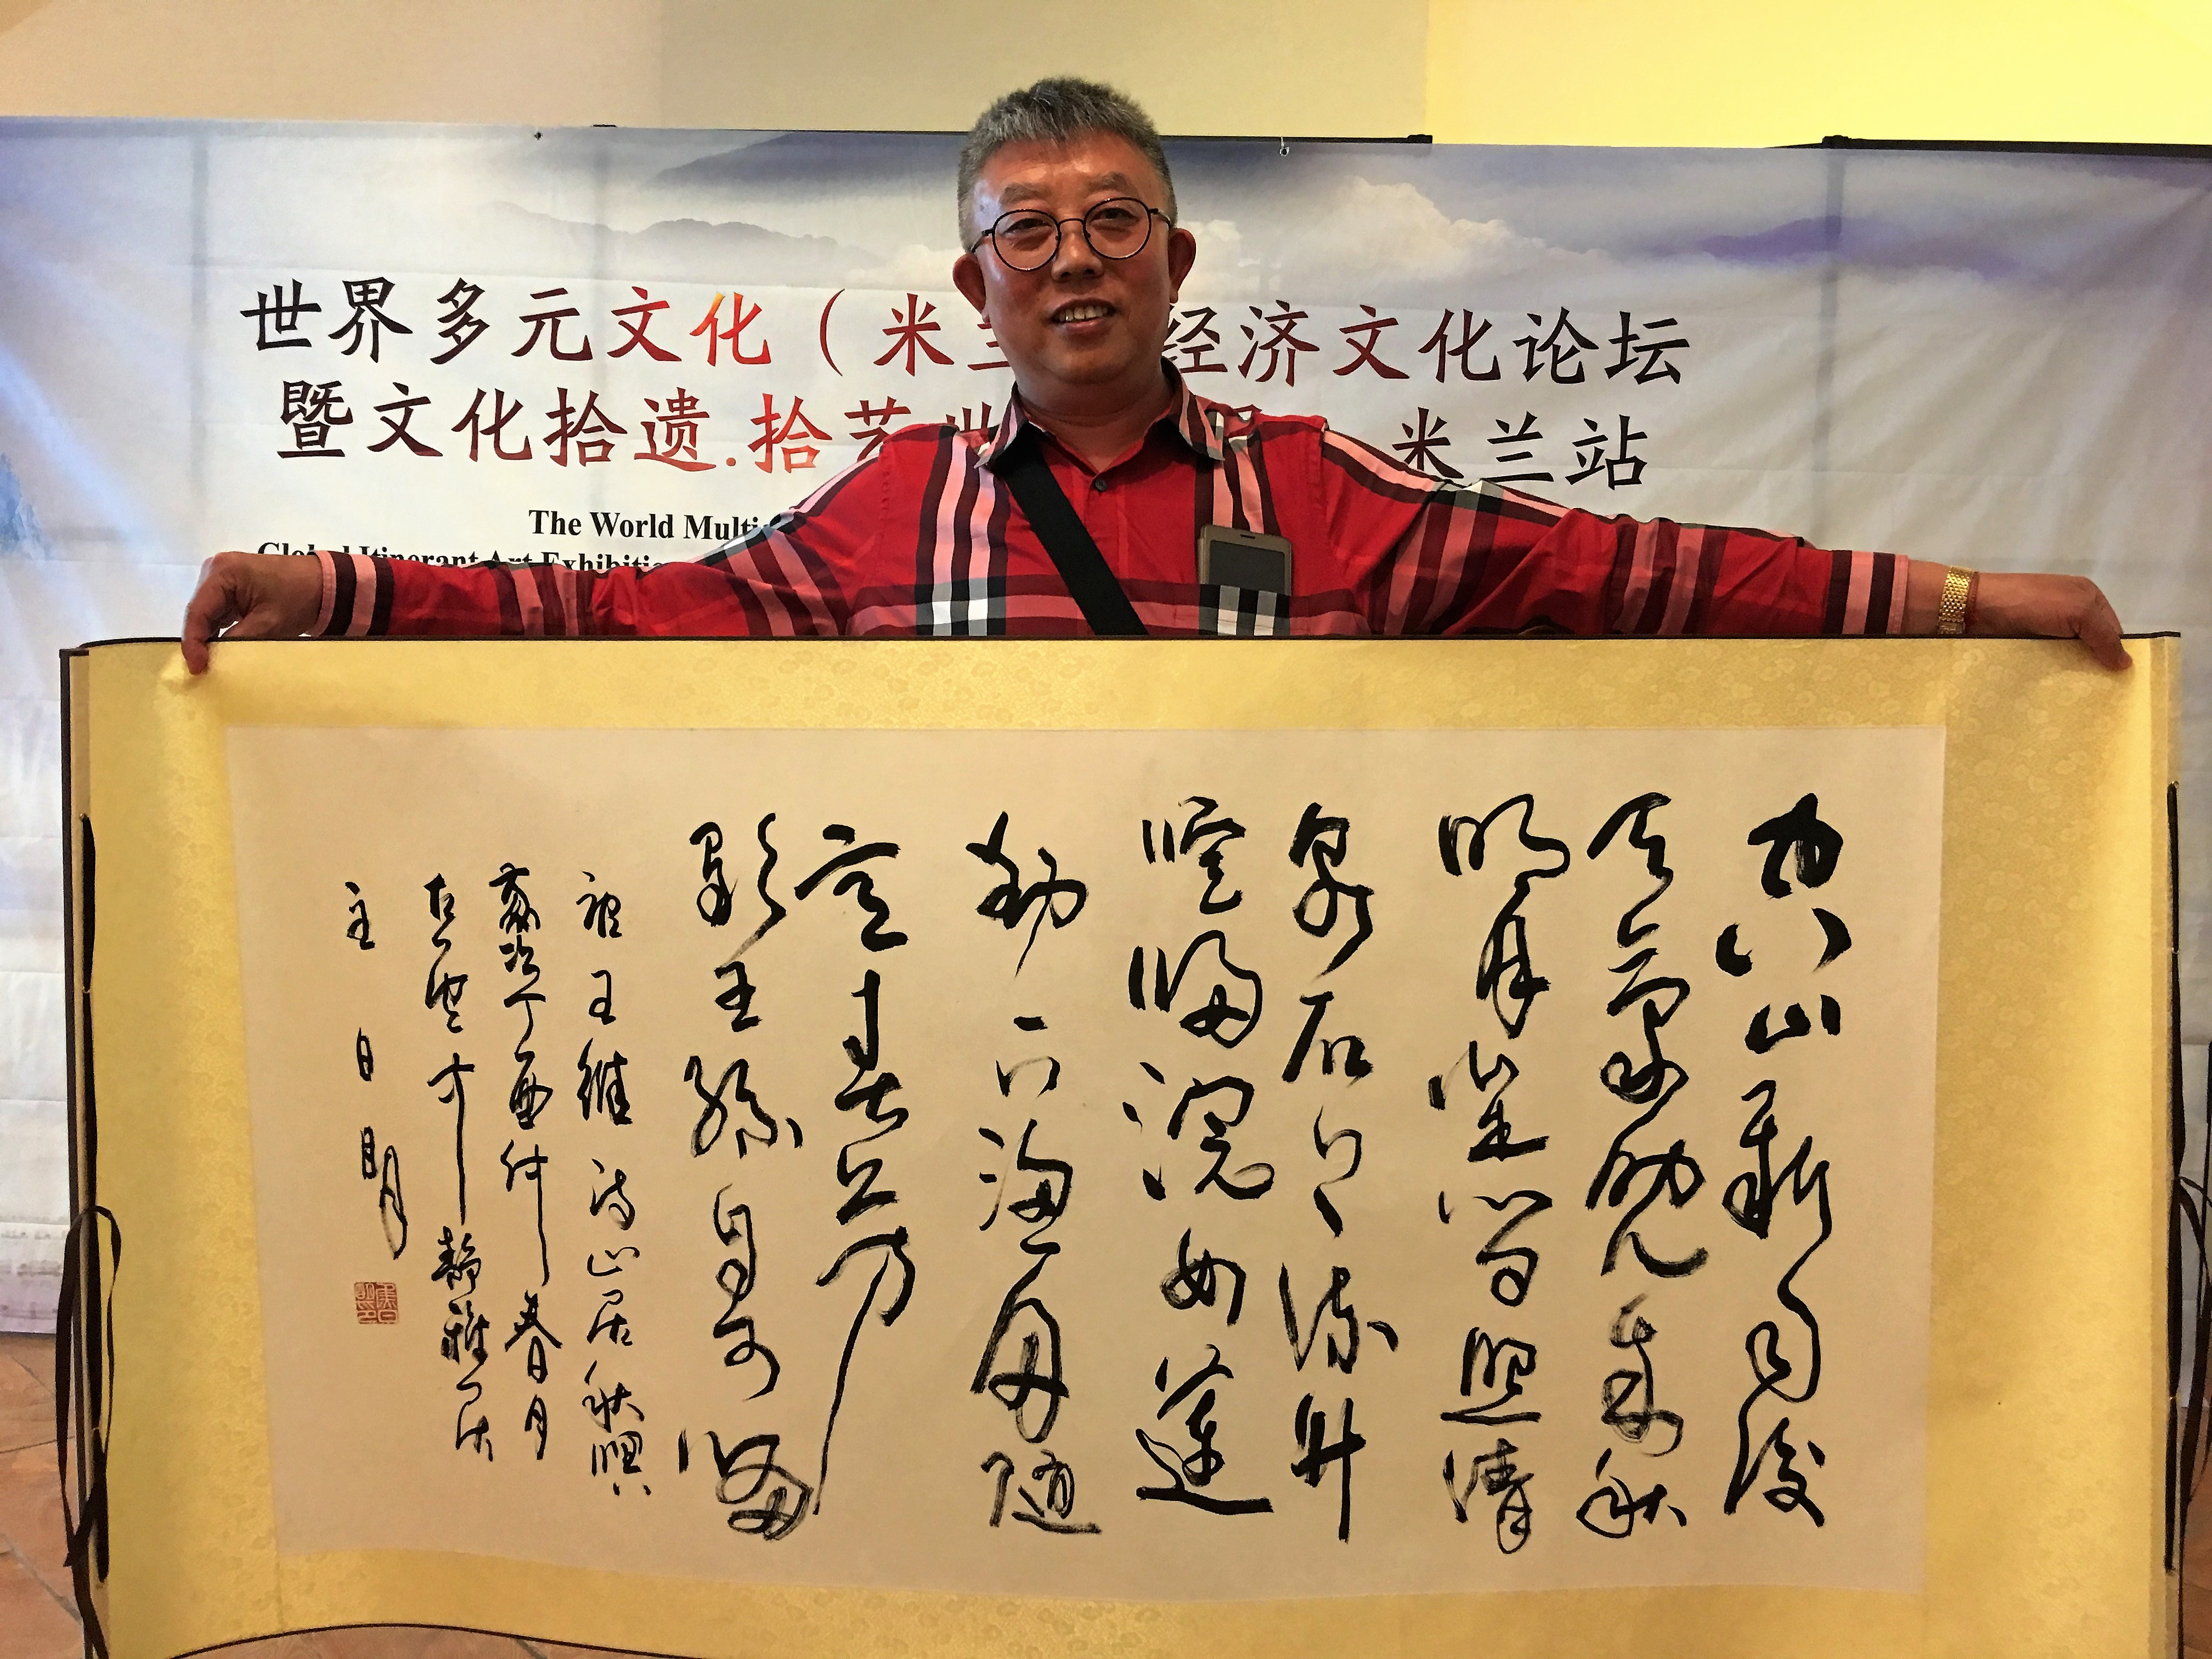 世界多元文化（米兰 经济文化论坛
暨文化拾遗.拾艺世 米兰站
The World Multi
Global Itinerant Art Exhibition
空山新雨后
天气晚来秋
明月松间照清
泉石上流竹
喧归浣女莲
动下渔舟随
意春芳
歇王孙自可留
录王维诗山居秋暝
岁次丁酉仲春月
古 方 静雅居
主 日明